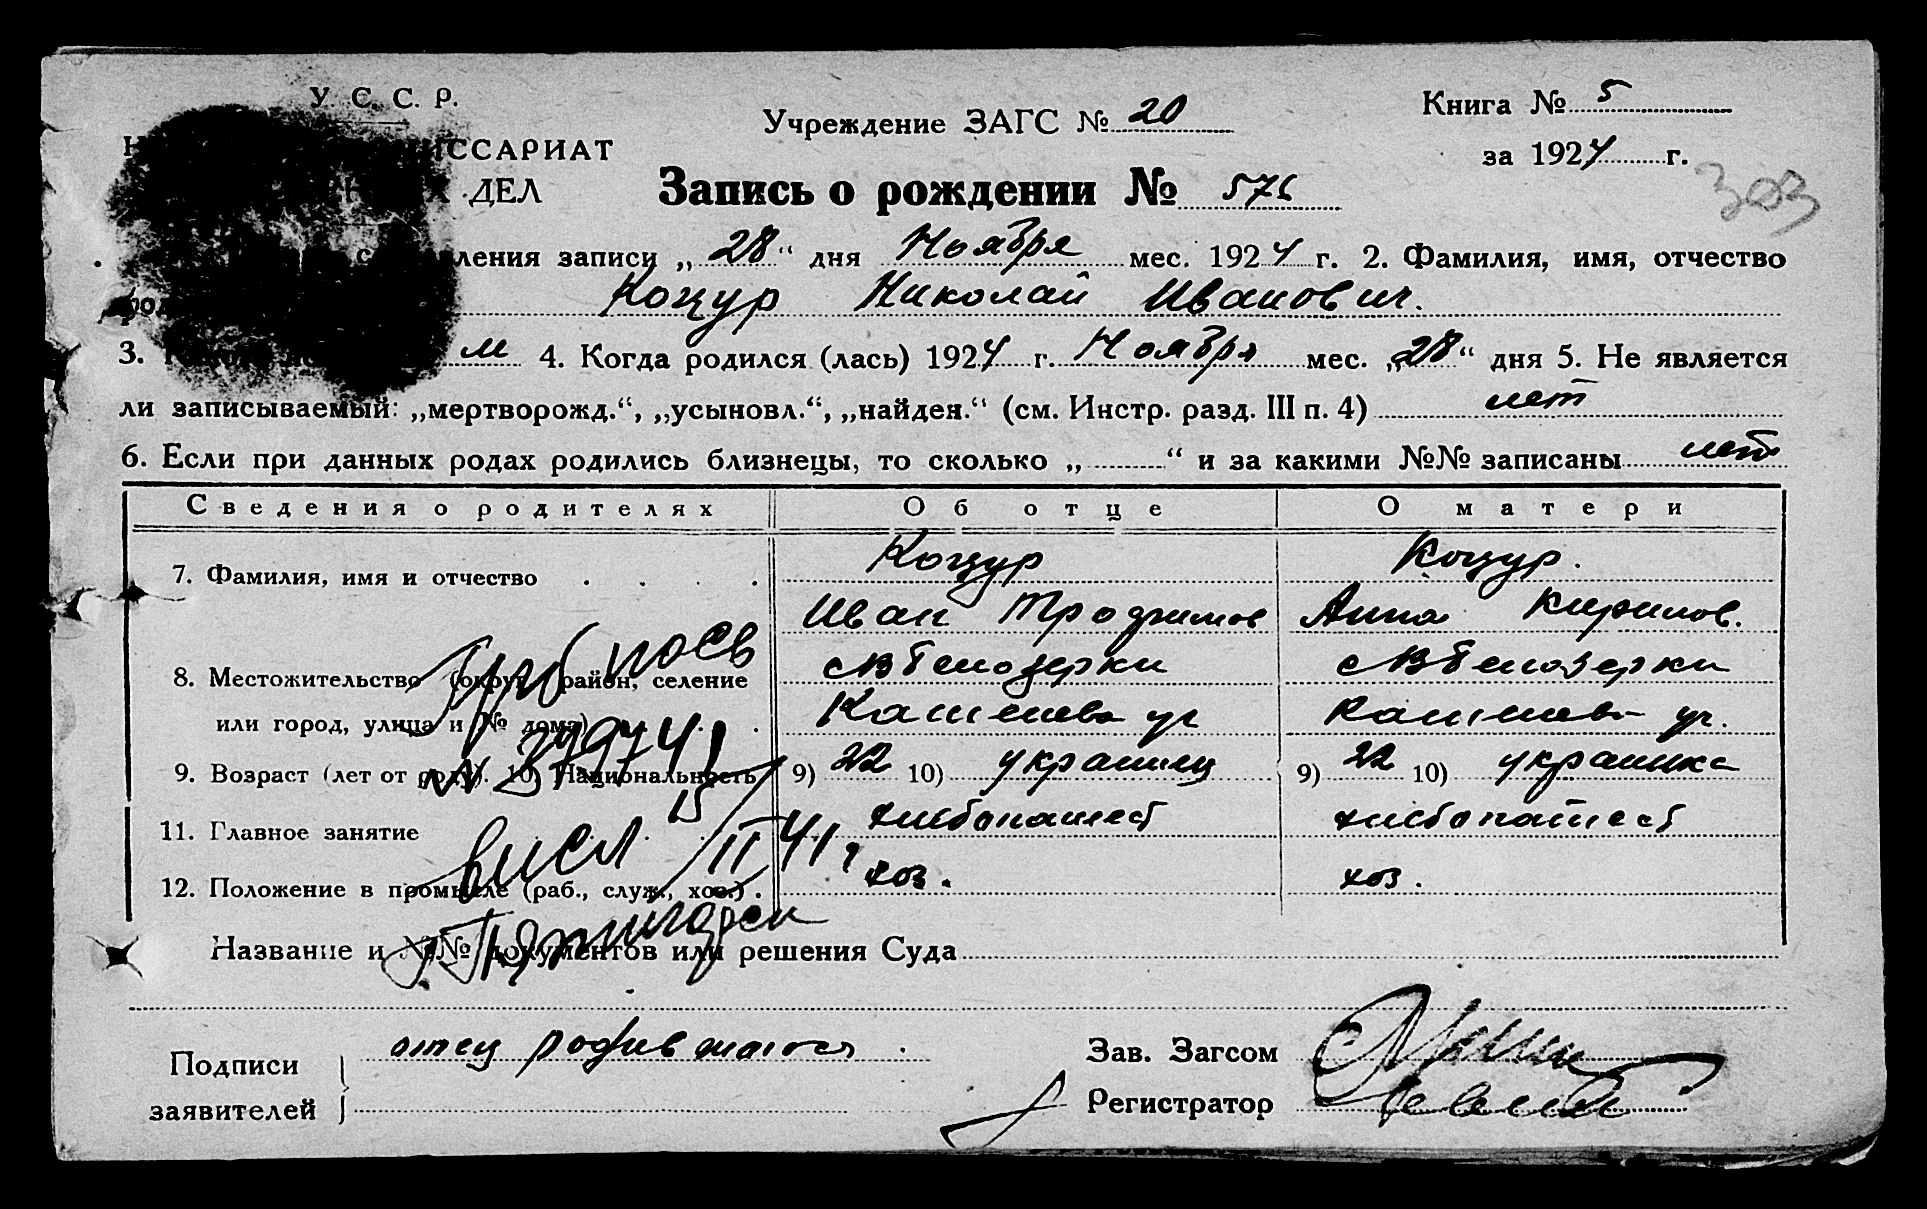 У. С. С. Р.
Учреждение ЗАГС № 20
Книга № 5
ССАРИАТ
за 1924 г.
ДЕЛ
Запись о рождении № 576
303
ления записи „28“ дня Ноября мес. 1924 г. 2. Фамилия, имя, отчество
Коцур Николай Иванович.
3. м 4. Когда родился (лась) 1924 г. Ноября мес. „28“ дня 5. Не является
ли записываемый: „мертворожд.“, „усыновл.“, „найден.“ (см. Инстр. разд. III п. 4) нет
6. Если при данных родах родились близнецы, то сколько „ “ и за какими №№ записаны нет
Сведения о родителях Об отце О матери
7. Фамилия, имя и отчество Коцур Коцур.
Иван Трофимов Анна Кирилов.
8. Местожительство (округ, район, селение с Белозерки с Белозерки
или город, улица и № дома)
9. Возраст (лет от роду). 10) Национальность 9) 22 10) украинец 9) 22 10) украинка
11. Главное занятие хлебопашест хлебопашест
12. Положение в промысле (раб., служ., хоз.) хоз. хоз.
15/II 41 г
Название и №№ документов или решения Суда
Подписи заявителей отец родившагося
Зав. Загсом
Регистратор